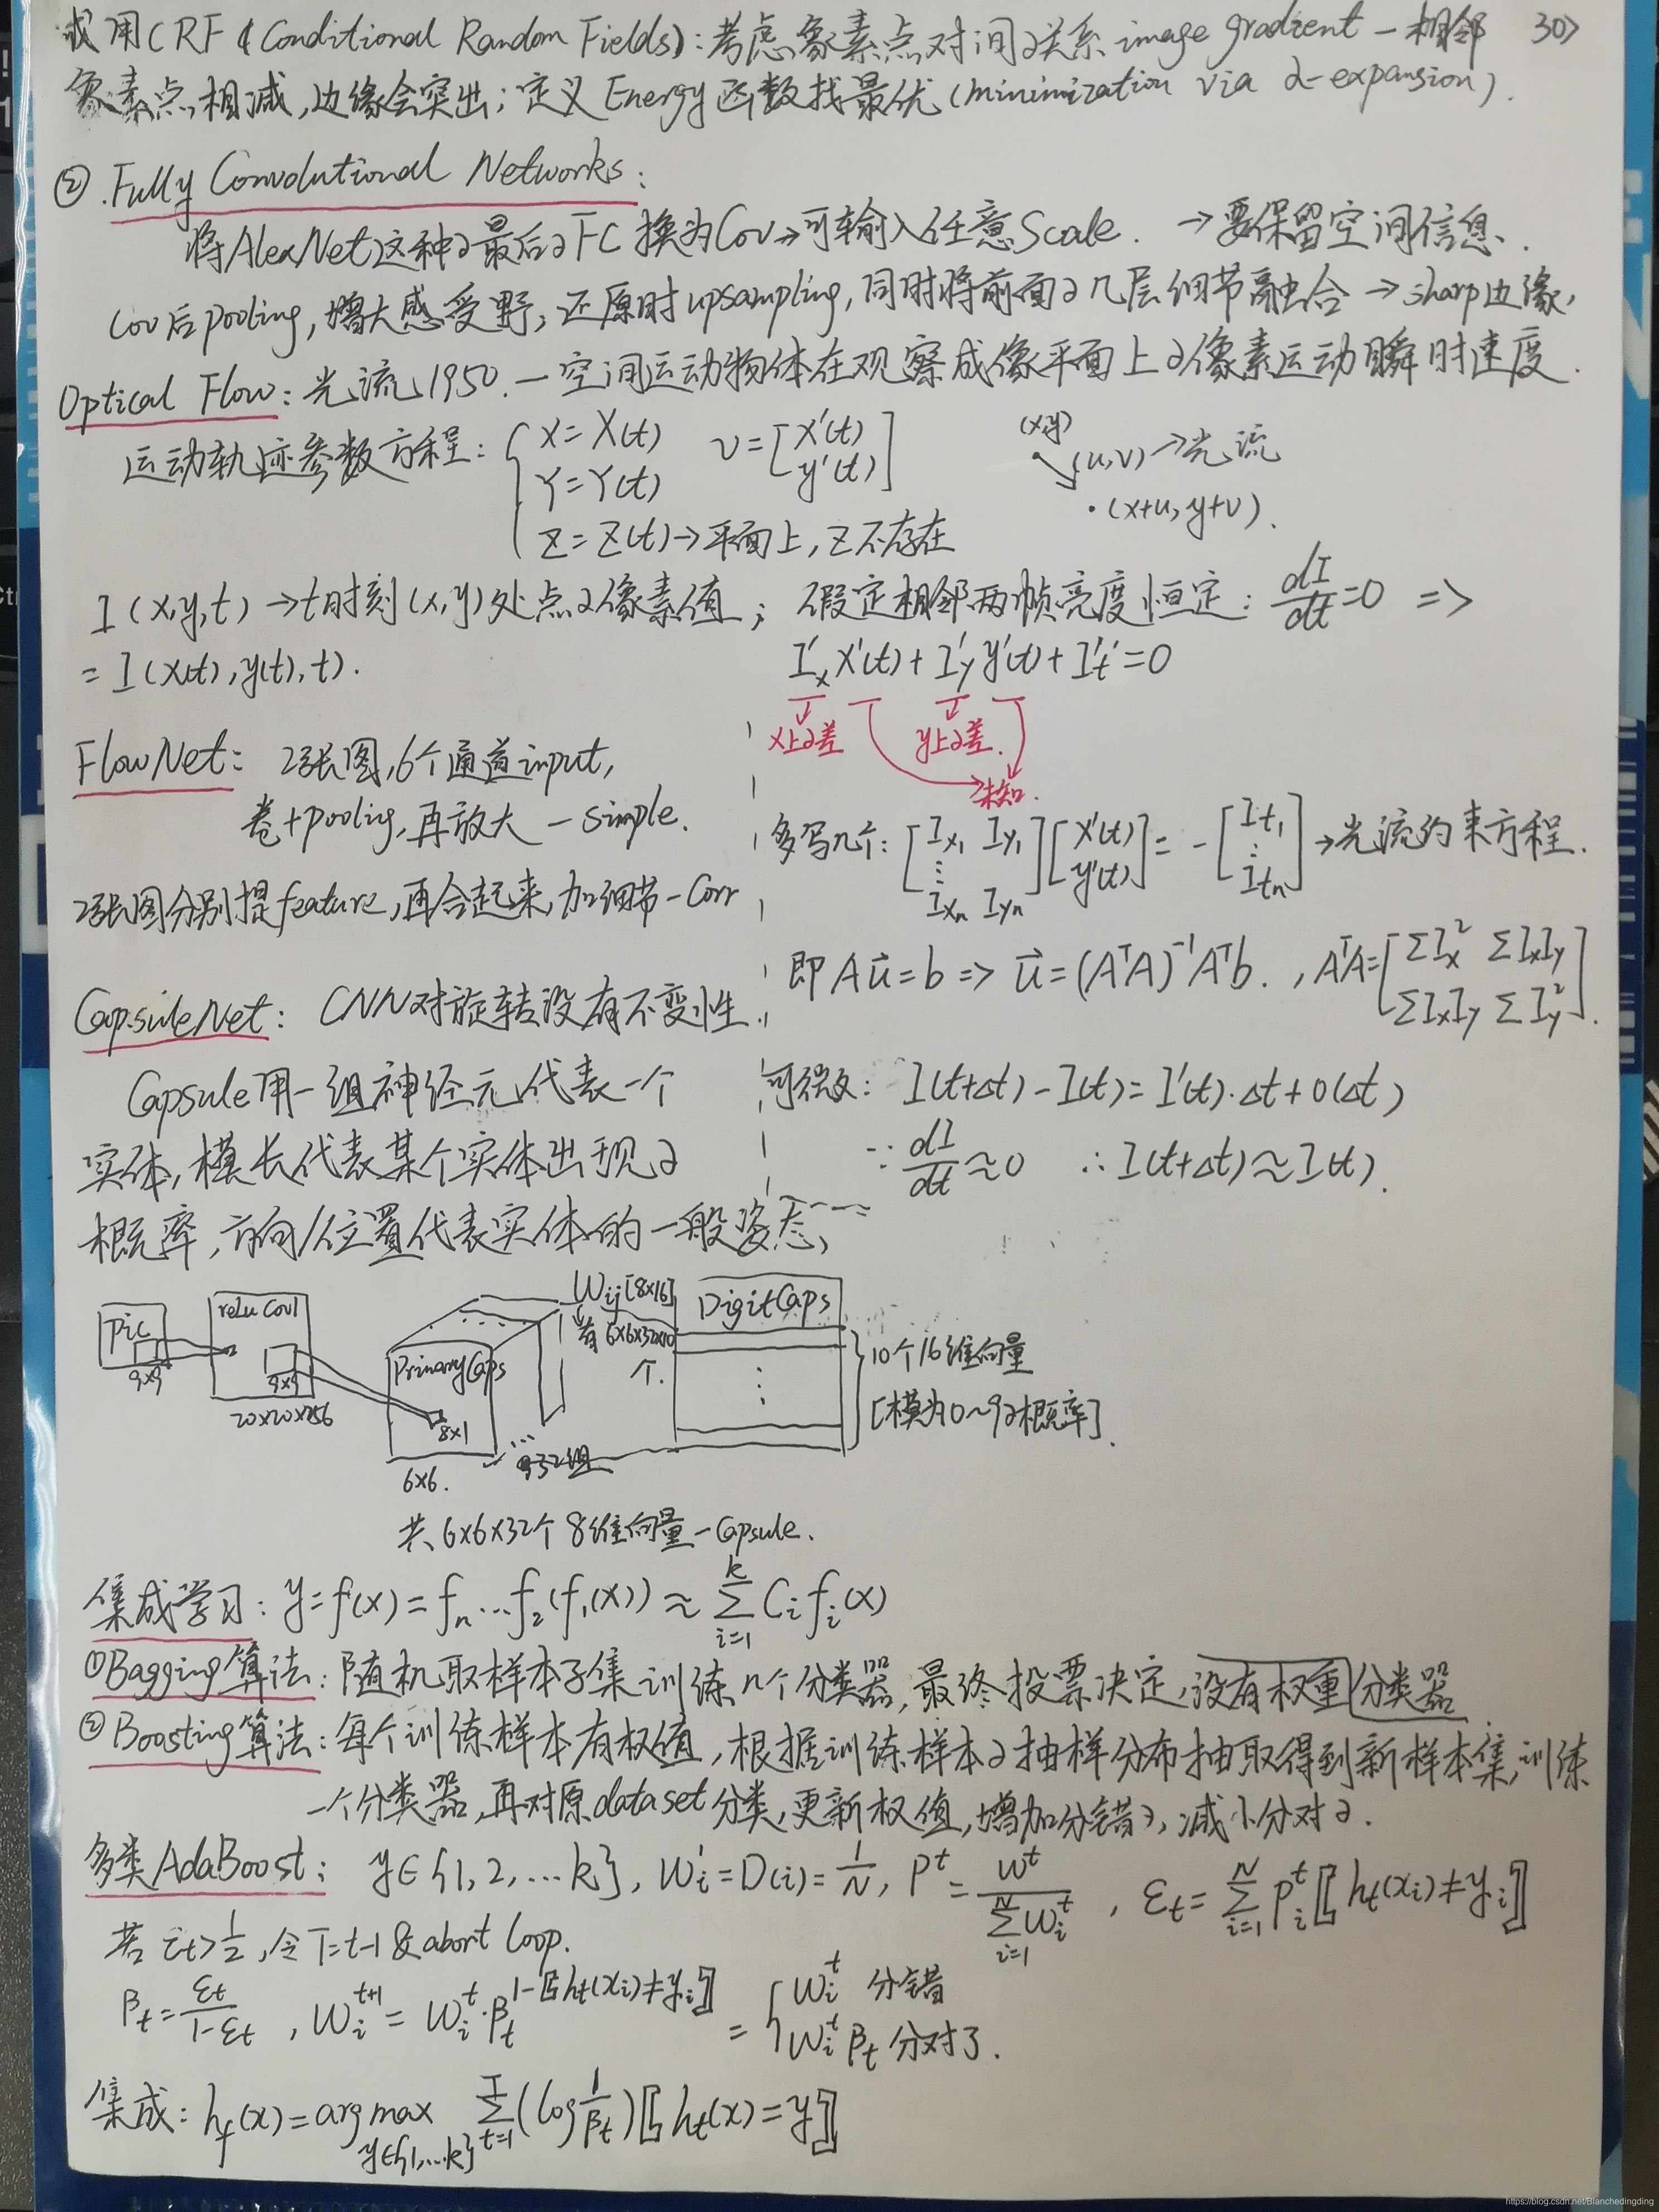 或用CRF(Conditional Random Fields):考虑象素点对间の关系 image gradient - 相邻 30>
象素点相减,边缘会突出;定义Energy函数找最优(minimization via α-expansion).
②.Fully Convolutional Networks:
将AlexNet这种の最后の FC 换为Cov→可输入任意Scale. →要保留空间信息.
Cov后pooling,增大感受野,还原时upsampling,同时将前面の几层细节融合→sharp边缘,
Optical Flow:光流1950.—空间运动物体在观察成像平面上の像素运动瞬时速度.
运动轨迹参数方程:{X=X(t) Y=Y(t) Z=Z(t)→平面上,Z不存在 v=[X'(t) y'(t)]
(x,y) (u,v)→光流
(x+u,y+v).
I(x,y,t)→t时刻(x,y)处点の像素值; 假定相邻两帧亮度恒定:dI/dt=0 =>
=I(x(t),y(t),t).
I'x X'(t)+I'y y'(t)+I't=0
x上の差 y上の差. 未知.
FlowNet: 2张图,6个通道input,
卷+pooling,再放大-simple.
2张图分别提feature,再合起来,加细节-Corr
多写几个:[Ix1 Iy1 ⋮ Ixn Iyn][X'(t) y'(t)]=-[It1 ⋮ Itn]→光流约束方程.
即Au⃗=b=>u⃗=(AᵀA)⁻¹Aᵀb. ,AᵀA=[ΣIx² ΣIxIy ΣIxIy ΣIy²].
CapsuleNet: CNN对旋转没有不变性.,
Capsule用一组神经元代表一个
实体,模长代表某个实体出现の
概率,方向/位置代表实体的一般姿态,
可微: I(t+Δt)-I(t)=I'(t)·Δt+o(Δt)
∵dI/dt≈0 ∴I(t+Δt)≈I(t).
pic 9x9
reLu Cov1 9x9
20x20x256
PrimaryCaps 8x1
6x6.
Wij[8x16]
有6x6x32x10
个.
... 32组
DigitCaps
10个16维向量
[模为0~9の概率].
共6x6x32个8维向量-Capsule.
集成学习:y=f(x)=fn...f2(f1(x))≈Σ_{i=1}^{k} Ci fi(x)
①Bagging算法:随机取样本子集训练n个分类器,最终投票决定,没有权重 分类器
②Boosting算法:每个训练样本有权值,根据训练样本の抽样分布抽取得到新样本集,训练
一个分类器,再对原dataset分类,更新权值,增加分错の,减小分对の.
多类AdaBoost: y∈{1,2,...k}, Wi¹=D(i)=1/N, Pᵗ=Wᵗ/Σ_{i=1}^{N}Wiᵗ , εt=Σ_{i=1}^{N}Piᵗ⟦ht(xi)≠yi⟧
若εt>1/2,令T=t-1&abort loop.
βt=εt/(1-εt) , Wi^{t+1}=Wiᵗ·βt^{1-⟦ht(xi)≠yi⟧} ={Wiᵗ 分错 Wiᵗβt 分对了.
集成:hf(x)=argmax_{y∈{1,...k}} Σ_{t=1}^{T}(log 1/βt)⟦ht(x)=y⟧
https://blog.csdn.net/Blanchedingding